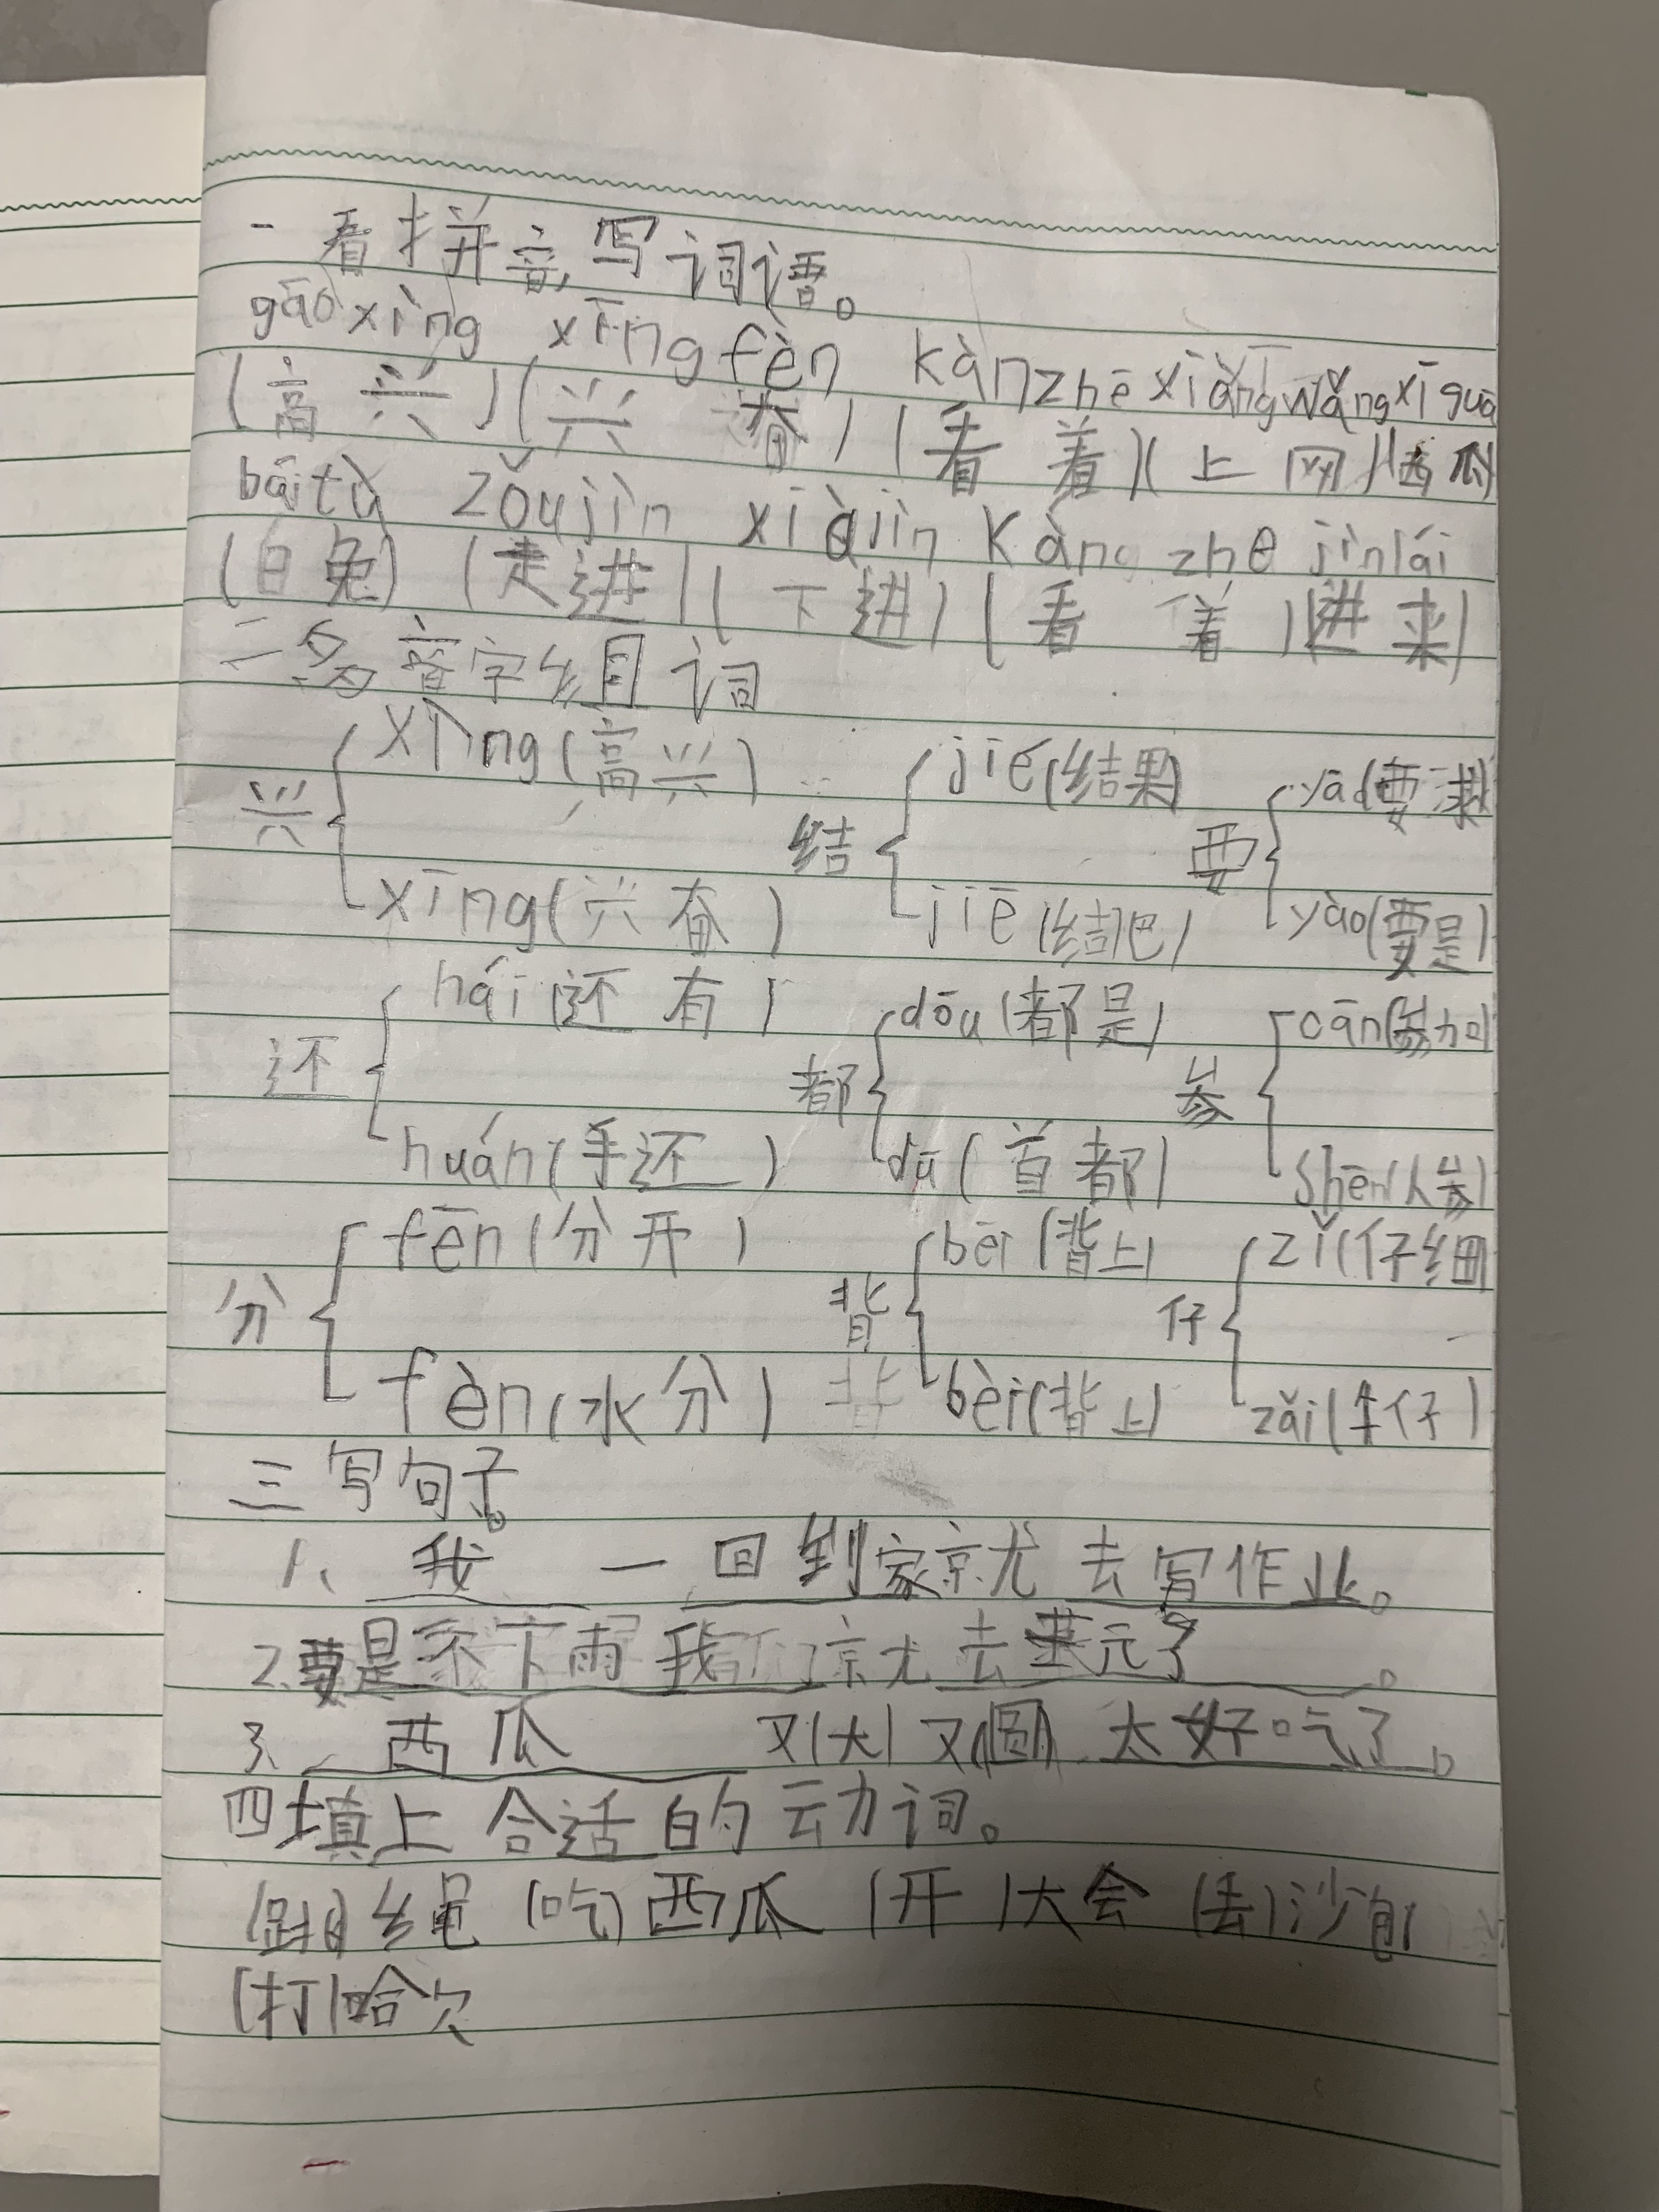 一看拼音,写词语。
gāoxìng xīngfèn kànzhē xiàngwǎng xīguā
(高兴)(兴奋)(看着)(上网)(西瓜)
báitù zǒujìn xiàjìn kàng zhe jìnlái
(白兔)(走进)(下进)(看着)(进来)
二多音字组词
兴{xìng(高兴) xīng(兴奋) 结{jié(结果) jiē(结巴) 要{yāo(要求) yào(要是)
还{hái(还有) huán(手还) 都{dōu(都是) dū(首都) 参{cān(参加) shēn(人参)
分{fēn(分开) fèn(水分) 背{bēi(背上) bèi(背上) 仔{zǐ(仔细) zǎi(牛仔)
三写句子。
1、我一回到家就去写作业。
2、要是不下雨我们就去公元了。
3、西瓜又(大)又(圆)太好吃了。
四填上合适的动词。
(跳)绳(吃)西瓜(开)大会(丢)沙包
(打)哈欠